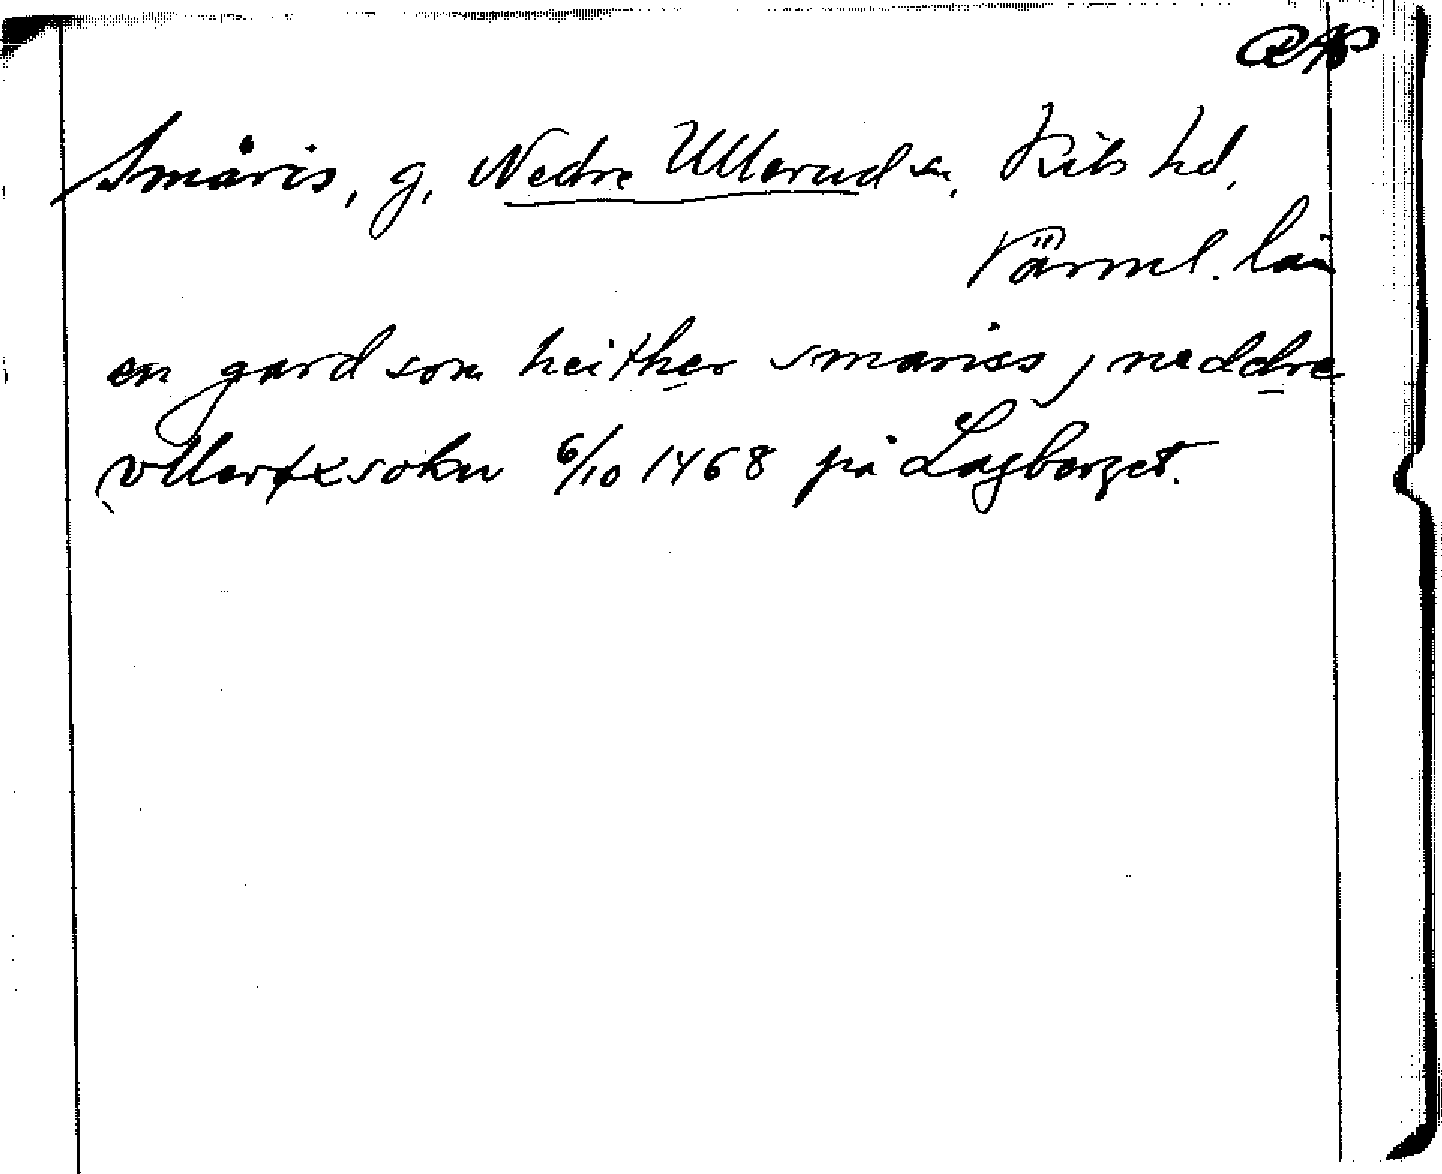 Småris, g, Nedre Ullerud sn, Kils hd,
Värml. län
en gard som heither smariss j neddre
vllerxxsokn 6/10 1468 på Lagberget.